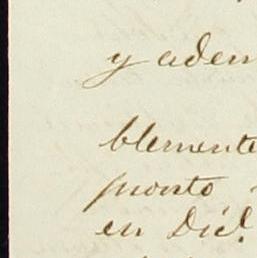 y adem
blemente
pronto
en Dicᵉ.